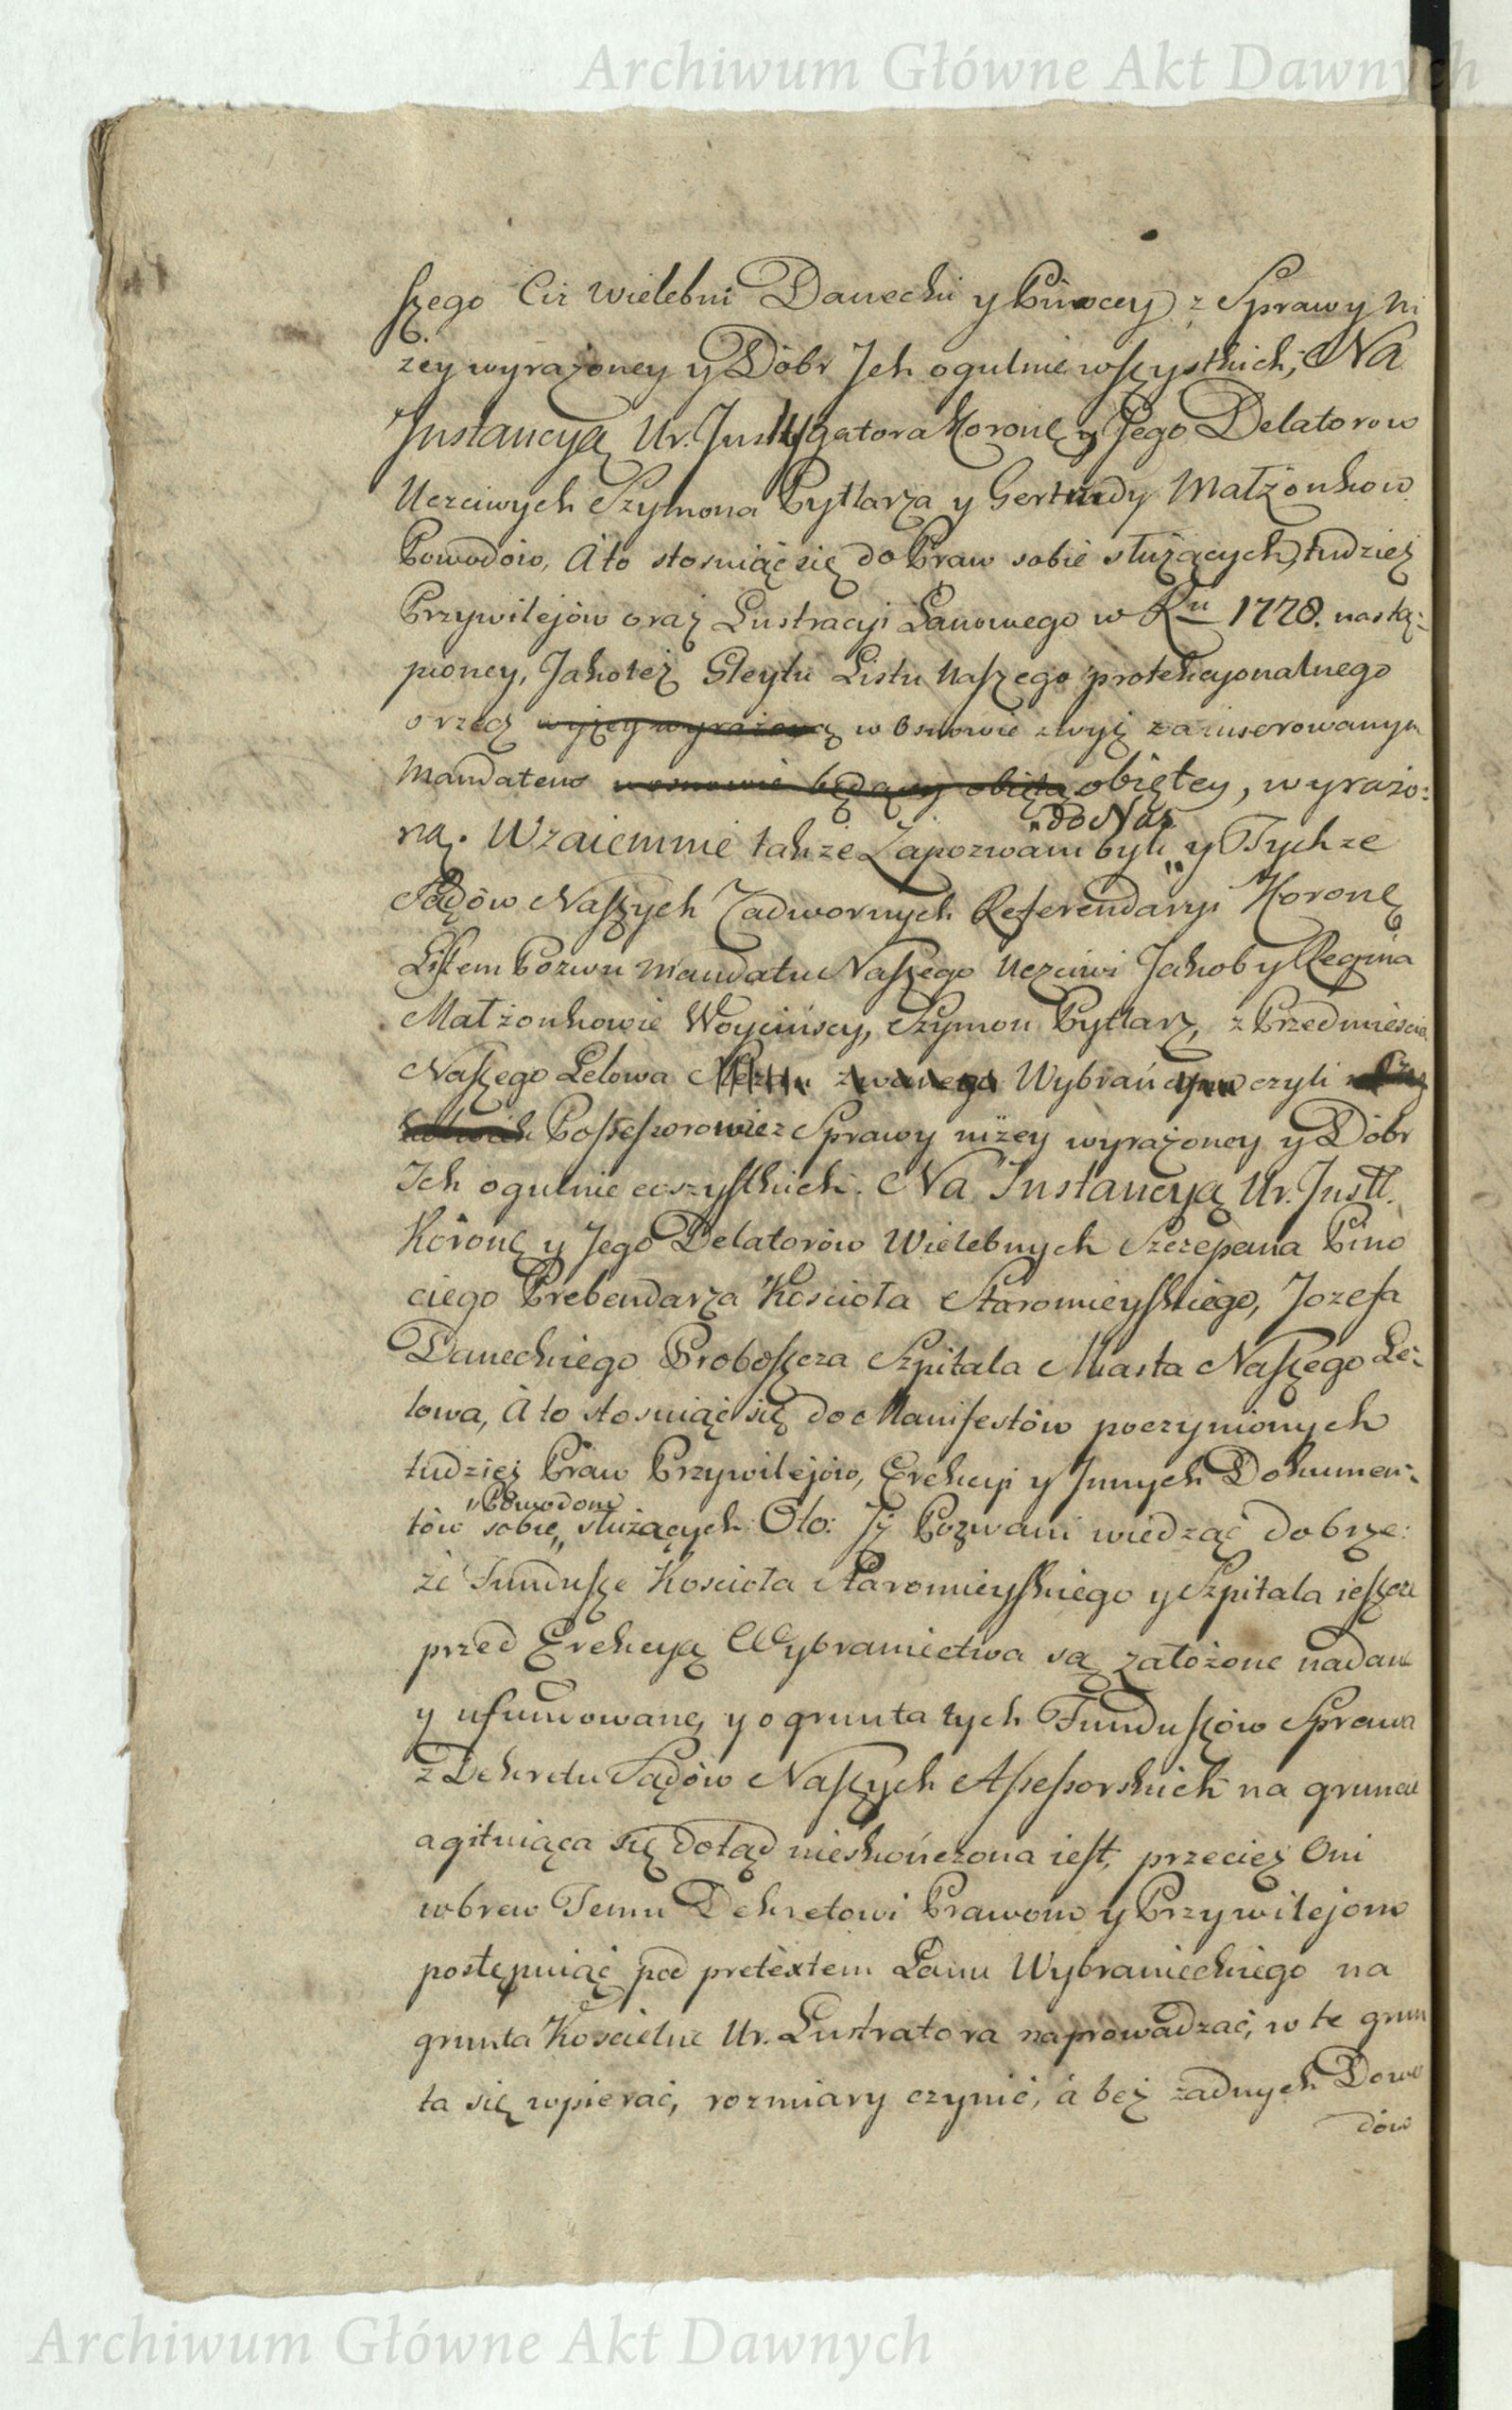 Archiwum Główne Akt Dawnych
szego Ciż Wielebni Danecki y Pinocey z Sprawy ni
żey wyrażoney y Dóbr Ich ogulnie wszystkich, Na
Instancyą Ur. Instygatora Koronę y Jego Delatorow
Uczciwych Szymona Pytlarza y Gertrudy Małżonkow
Powodów, A to stosuiąc się do Praw sobie służących, tudzież
Przywilejów oraz Lustracyi Łanowego w Ru 1778. nastą:
pioney, Jakoteż Gleytu Listu Naszego protekcyonalnego
o rzecz wyżey wyrażoną w Osnowie zwyż zainserowanym
Mandatem w osnowie będący obięta obiętey, wyrażo:
ną. Wzaiemnie także Zapozwani byli do Nas y Tychze
Sądów Naszych Zadwornych Referendaryi Koronę
Listem Pozwu Mandatu Naszego Uczciwi Jakob y Regina
Małżonkowie Woycińscy, Szymon Pytlarz, z Przedmieścia
Naszego Lelowa zwanego Wybrań czyli
Possessorowie z Sprawy niżey wyrażoney y Dóbr
Ich ogulnie wszystkich. Na Instancyą Ur. Instt.
Koronę y Jego Delatorów Wielebnych Szczepana Pino
ciego Prebendarza Kościoła Staromieyskiego, Jozefa
Daneckiego Proboszcza Szpitala Miasta Naszego Le:
lowa, A to stosuiąc się do Manifestów poczynionych
tudzież Praw Przywilejów, Erekcyi y Innych Dokumen:
tów sobie Powodom służących. Oto: Iż Pozwani wiedząc dobrze:
że Fundusze Kościoła Staromieyskiego y Szpitala ieszcze
przed Erekcyą Wybraniectwa są założone nadane
y ufundowane, y o grunta tych Funduszów Sprawa
z Dekretu Sądów Naszych Assessorskich na gruncie
agituiąca się dotąd nieskończona iest, przecież Oni
wbrew Temu Dekretowi Prawom y Przywilejom
postępuiąc pod pretextem Łanu Wybranieckiego na
grunta Kościelne Ur. Lustratora naprowadzać, w te grun
ta się wpierać, rozmiary czynić, á bez żadnych Dowo
dów
Archiwum Główne Akt Dawnych